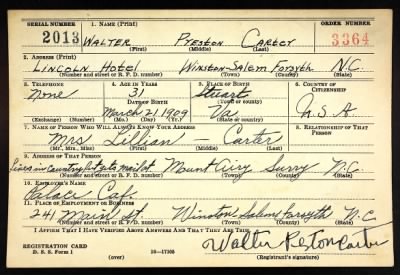 SERIAL NUMBER 1. NAME (Print) ORDER NUMBER
2013 WALTER PRESTON CARTER 3364
(First) (Middle) (Last)
2. ADDRESS (Print)
LINCOLN HOTEL WINSTON-SALEM FORSYTH N.C.
(Number and street or R. F. D. number) (Town) (County) (State)
3. TELEPHONE 4. AGE IN YEARS 5. PLACE OF BIRTH 6. COUNTRY OF CITIZENSHIP
None 31 Stuart
DATE OF BIRTH (Town or county)
March 21 1909 Va. U.S.A.
(Exchange) (Number) (Mo.) (Day) (Yr.) (State or country)
7. NAME OF PERSON WHO WILL ALWAYS KNOW YOUR ADDRESS 8. RELATIONSHIP OF THAT PERSON
Mrs Lillian - Carter
(Mr., Mrs., Miss) (First) (Middle) (Last)
9. ADDRESS OF THAT PERSON
Lives in country but gets mail at. Mount Airy Surry N.C.
(Number and street or R. F. D. number) (Town) (County) (State)
10. EMPLOYER'S NAME
Palace Caf.
11. PLACE OF EMPLOYMENT OR BUSINESS
241 Main St. Winston Salem Forsyth N.C
(Number and street or R. F. D. number) (Town) (County) (State)
I AFFIRM THAT I HAVE VERIFIED ABOVE ANSWERS AND THAT THEY ARE TRUE.
REGISTRATION CARD Walter Carter
D. S. S. Form 1 (over) 16-17105 (Registrant's signature)